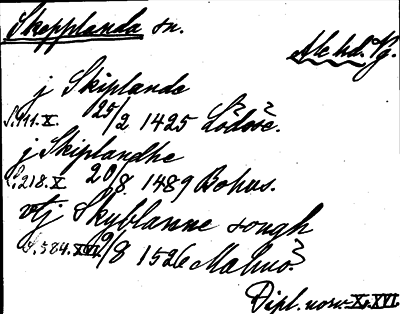 Skepplanda sn.
Ale hd. Vg.
j Skiplande
S.111.X. 25/2 1425 Lödöse.
j Skiplandhe
S.218.X 20/8 1489 Bohus.
vtj Skyblanne songh
S.584.XVI 19/8 1526 Malmö.
Dipl. norv. X. XVI.